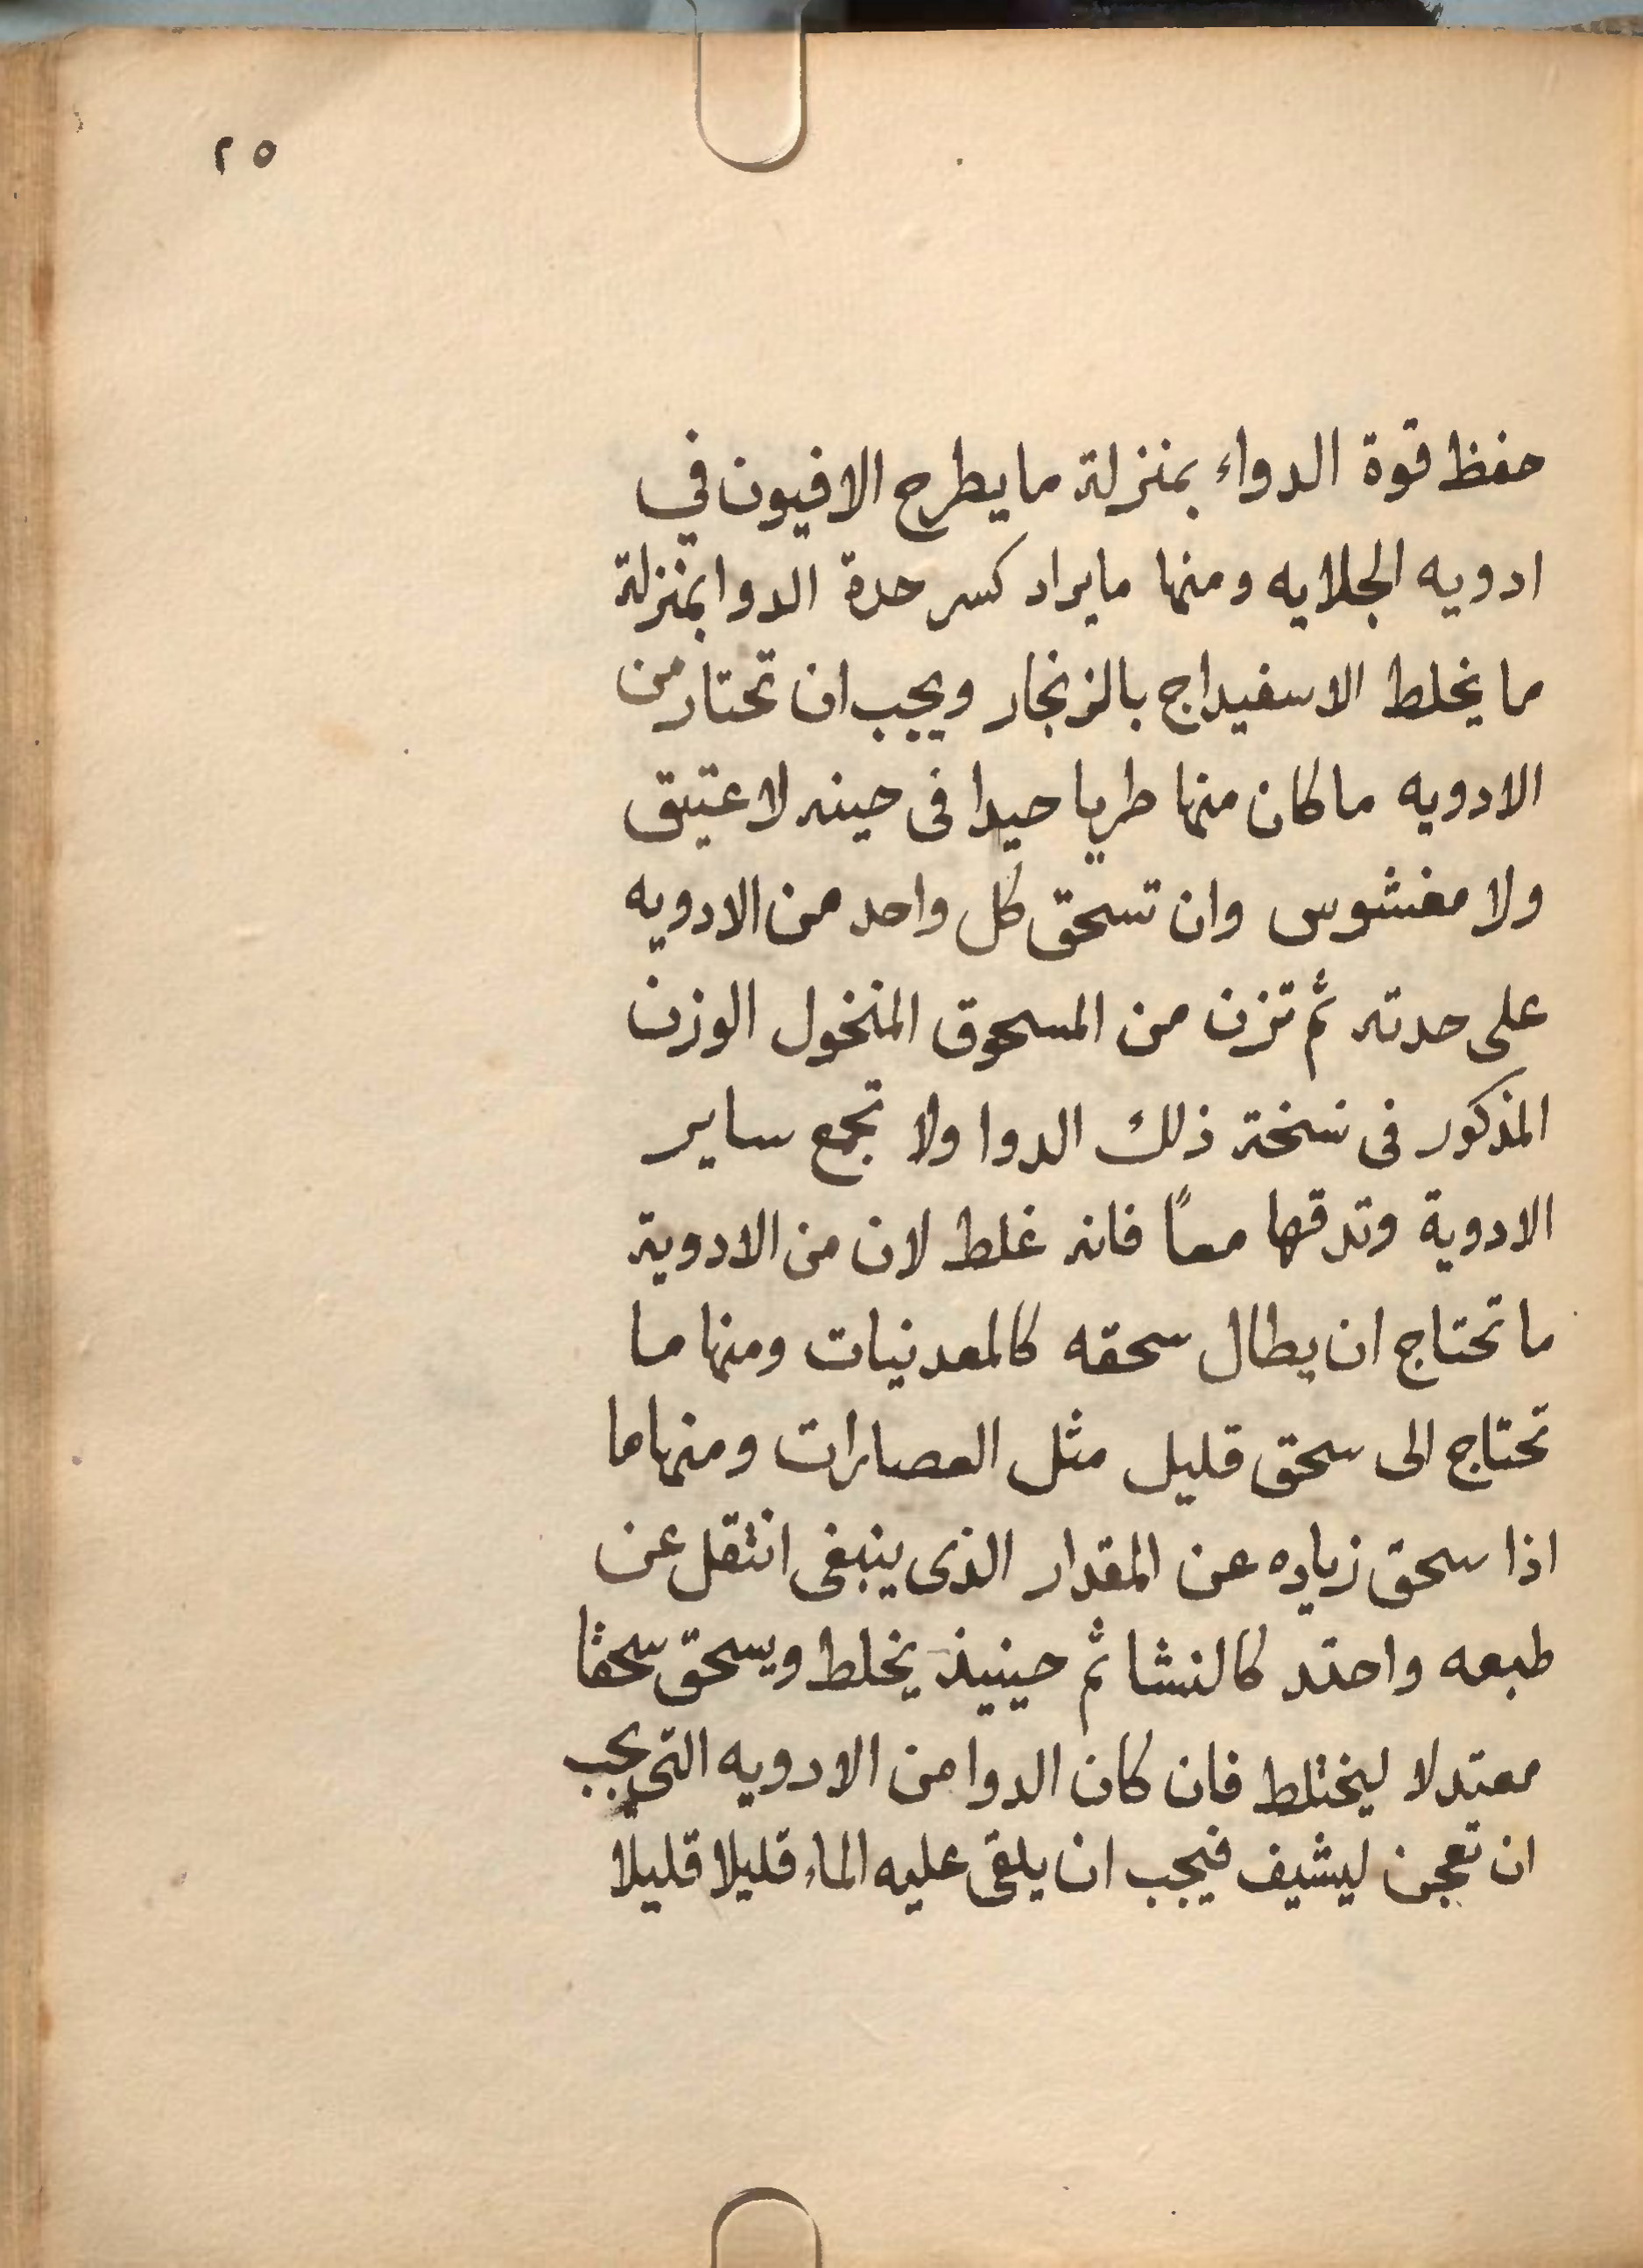 ٢٥
حفظ قوة الدواء بمنزلة ما يطرح الافيون في
ادويه الجلايه ومنها ما يراد كسر حدة الدوا بمنزلة
ما يخلط الاسفيداج بالزنجار ويجب ان تختار من
الادويه ما كان منها طريا جيدا فى حينه لا عتيق
ولا مغشوس وان تسحق كل واحد من الادويه
على حدته ثم تزن من المسحوق المنخول الوزن
المذكور فى نسخة ذلك الدوا ولا تجمع ساير
الادوية وتدقها معاً فانه غلط لان من الادوية
ما تحتاج ان يطال سحقه كالمعدنيات ومنها ما
تحتاج الى سحق قليل مثل العصارات ومنها ما
اذا سحق زياده عن المقدار الذى ينبغى انتقل عن
طبعه واحتد كالنشا ثم حينيذ يخلط ويسحق سحقا
معتدلا ليختلط فان كان الدوا من الادويه التى يجب
ان تعجن ليشيف فيجب ان يلقى عليه الماء قليلا قليلا